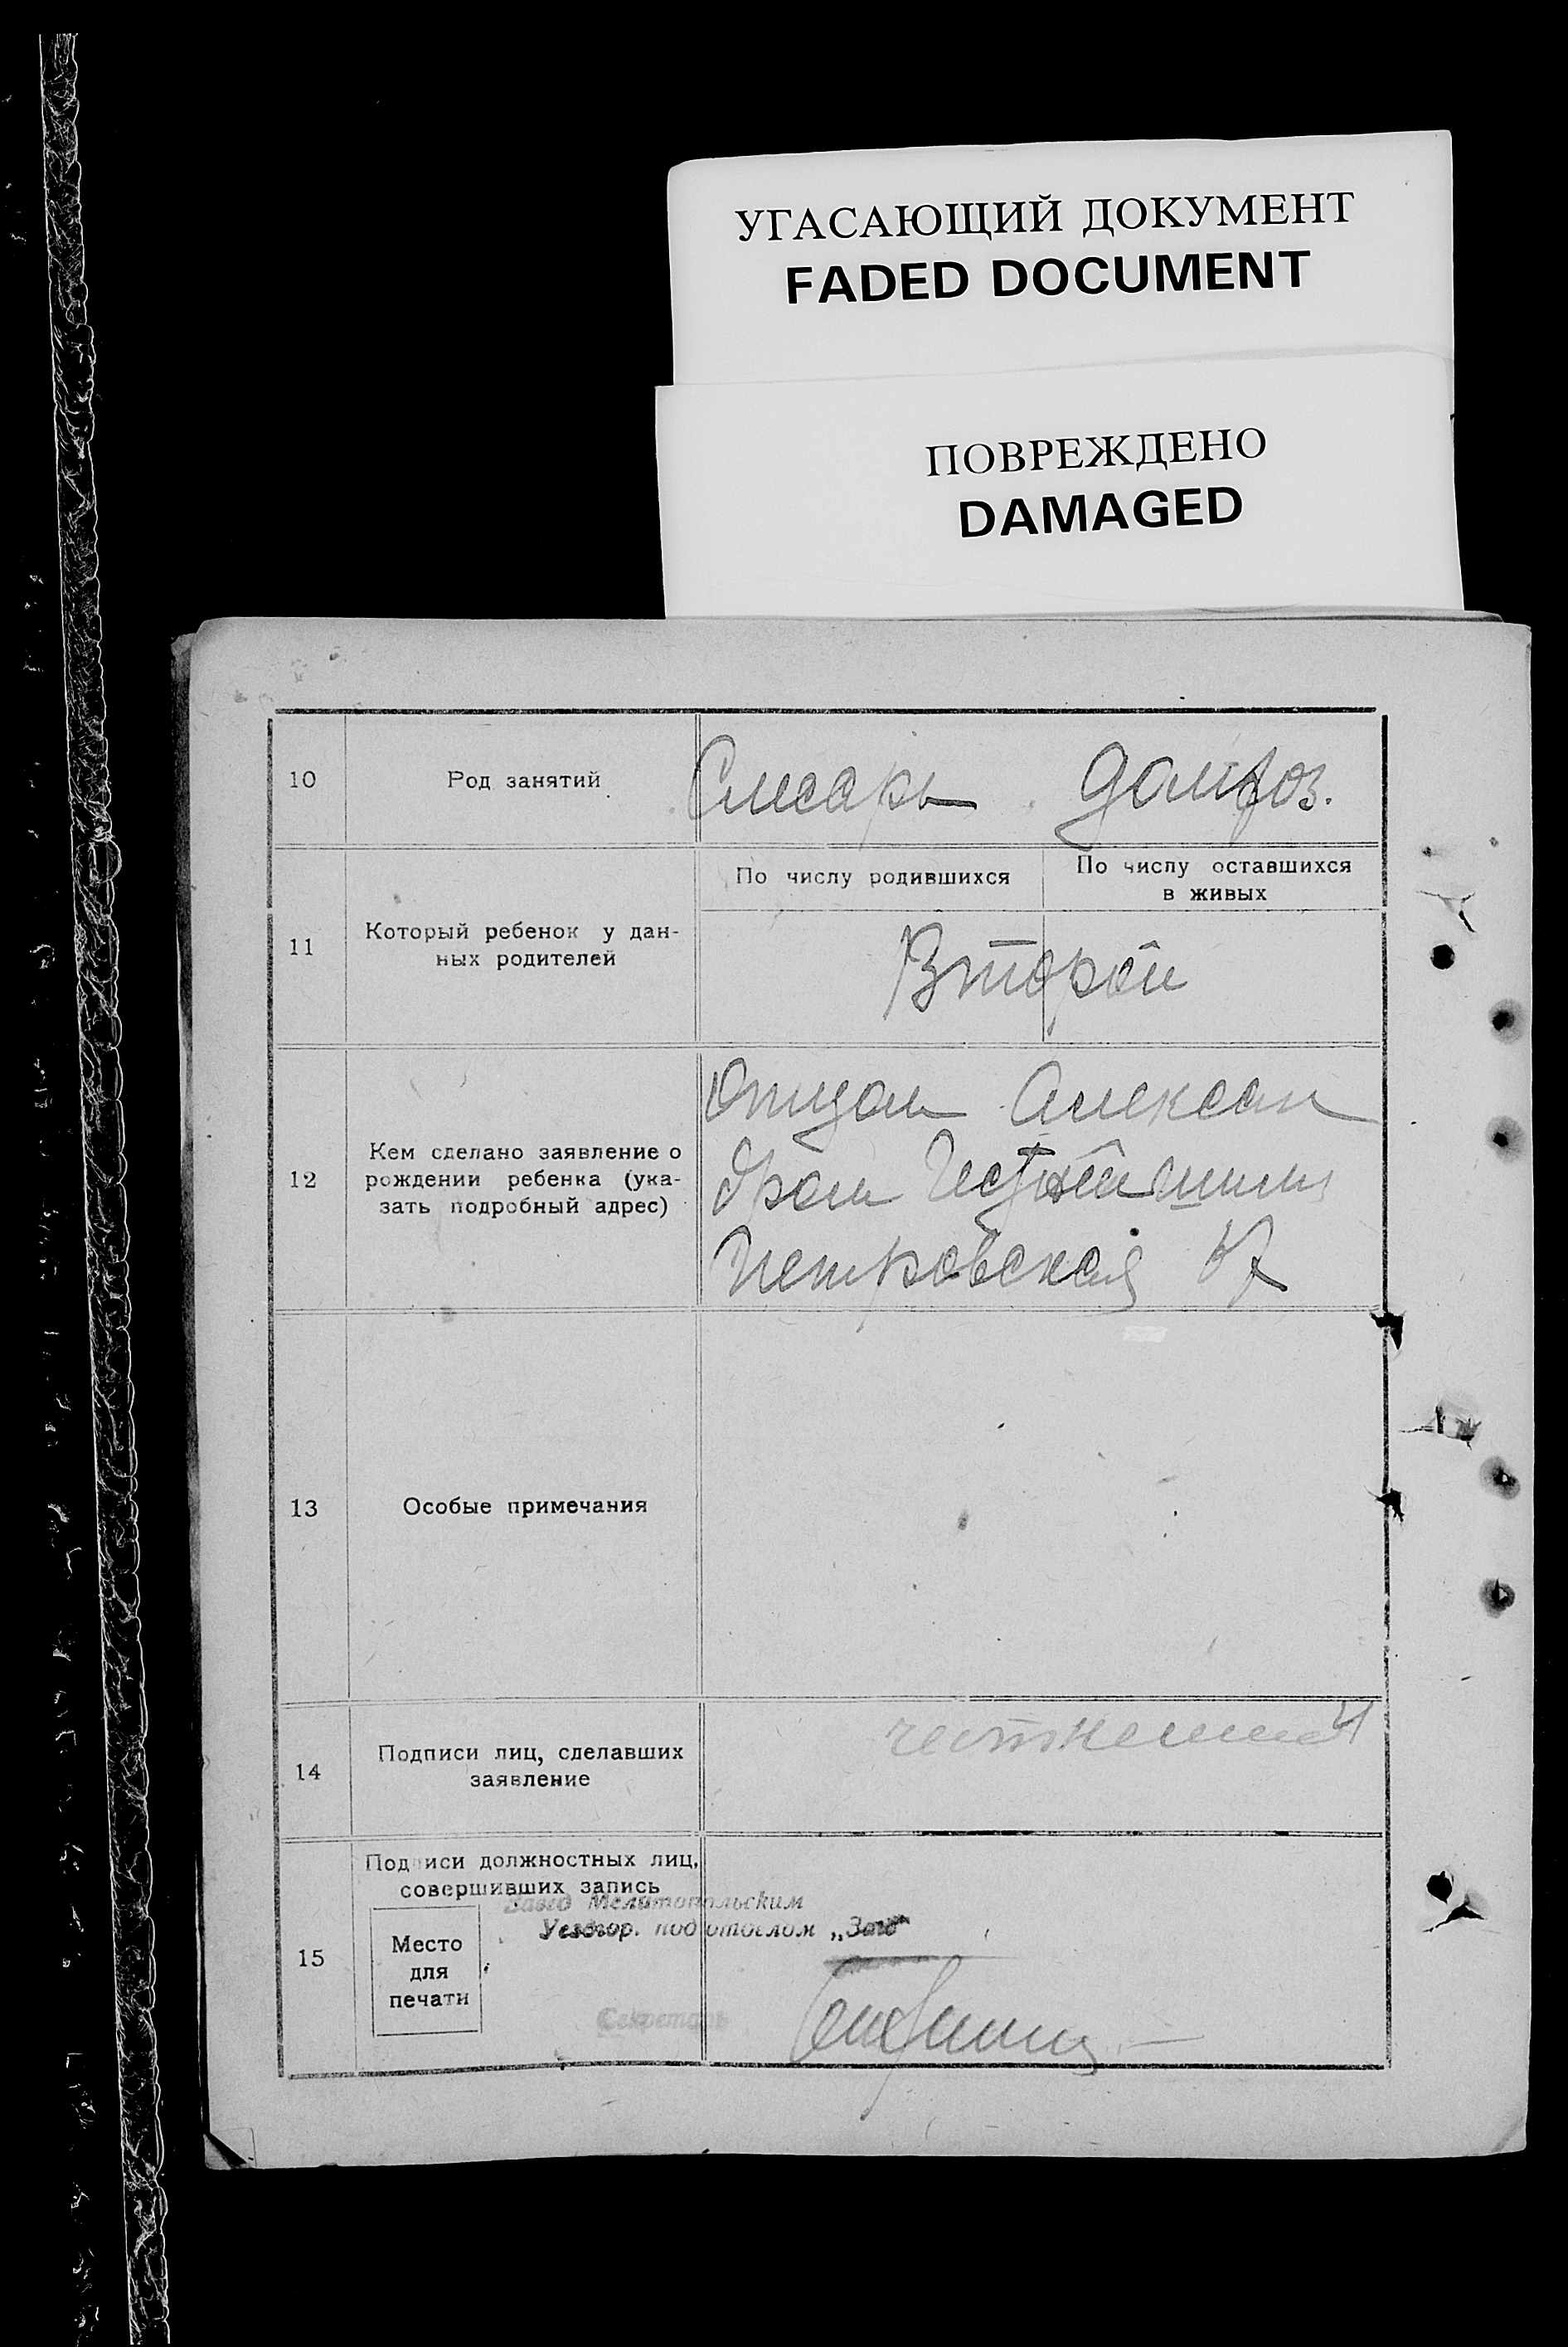 УГАСАЮЩИЙ ДОКУМЕНТ
FADED DOCUMENT
ПОВРЕЖДЕНО
DAMAGED
10 Род занятий Слесарь домхоз.
11 Который ребенок у дан-
ных родителей
По числу родившихся
По числу оставшихся
в живых
Второй
12 Кем сделано заявление о
рождении ребенка (ука-
зать подробный адрес)
Отцом Алексан
дром
Петровская
13 Особые примечания
14 Подписи лиц, сделавших
заявление
15 Подписи должностных лиц,
совершивших запись
Завед Мелитопольским
Уездгор. подотделом „Загс"
Место
для
печати
Секретарь